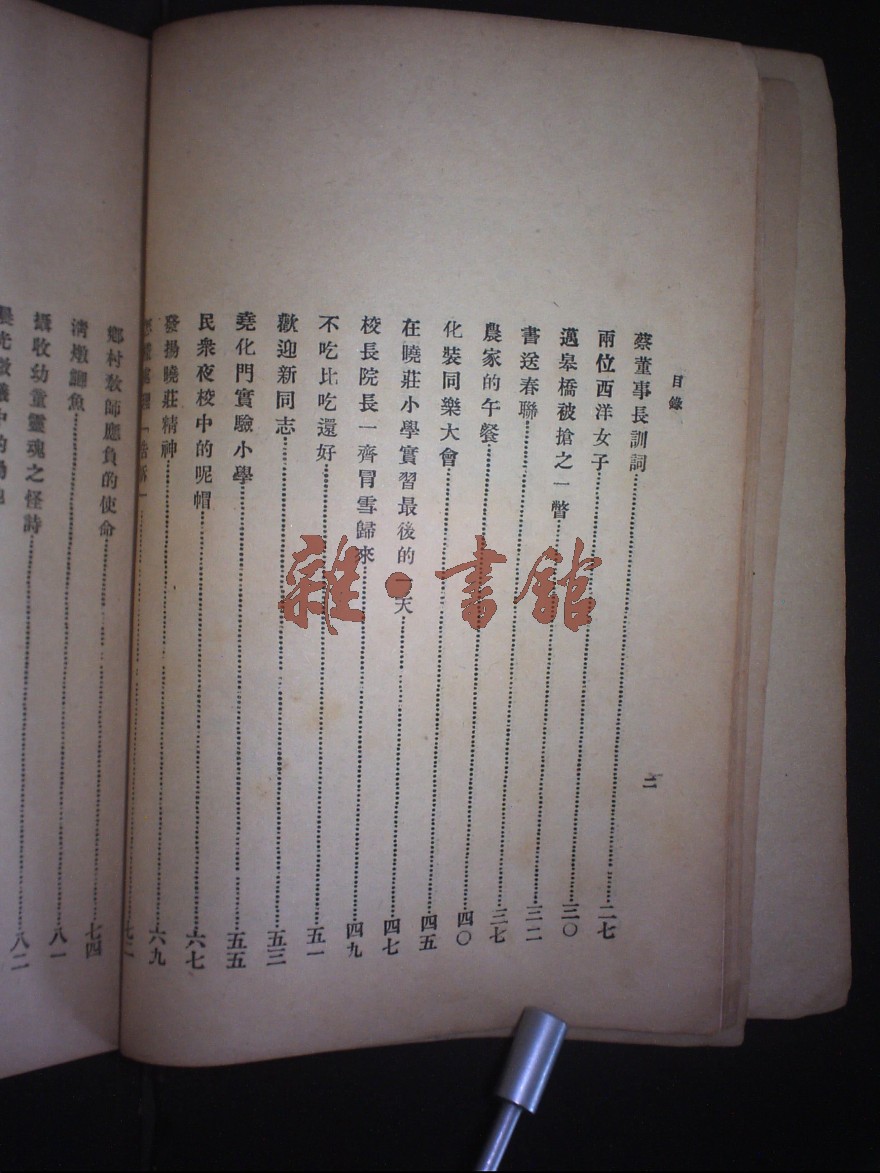 目錄 二
蔡董事長訓詞……二七
兩位西洋女子……三〇
邁皋橋被搶之一瞥……三二
書送春聯……三七
農家的午餐……四〇
化裝同樂大會……四五
在曉莊小學實習最後的一天……四七
校長院長一齊冒雪歸來……四九
不吃比吃還好……五一
歡迎新同志……五三
堯化門實驗小學……五五
民衆夜校中的呢帽……六七
發揚曉莊精神……六九
處理
鄉村教師應負的使命……七四
清燉鯽魚……八一
攝收幼童靈魂之怪詩……八二
中的
雜·書館